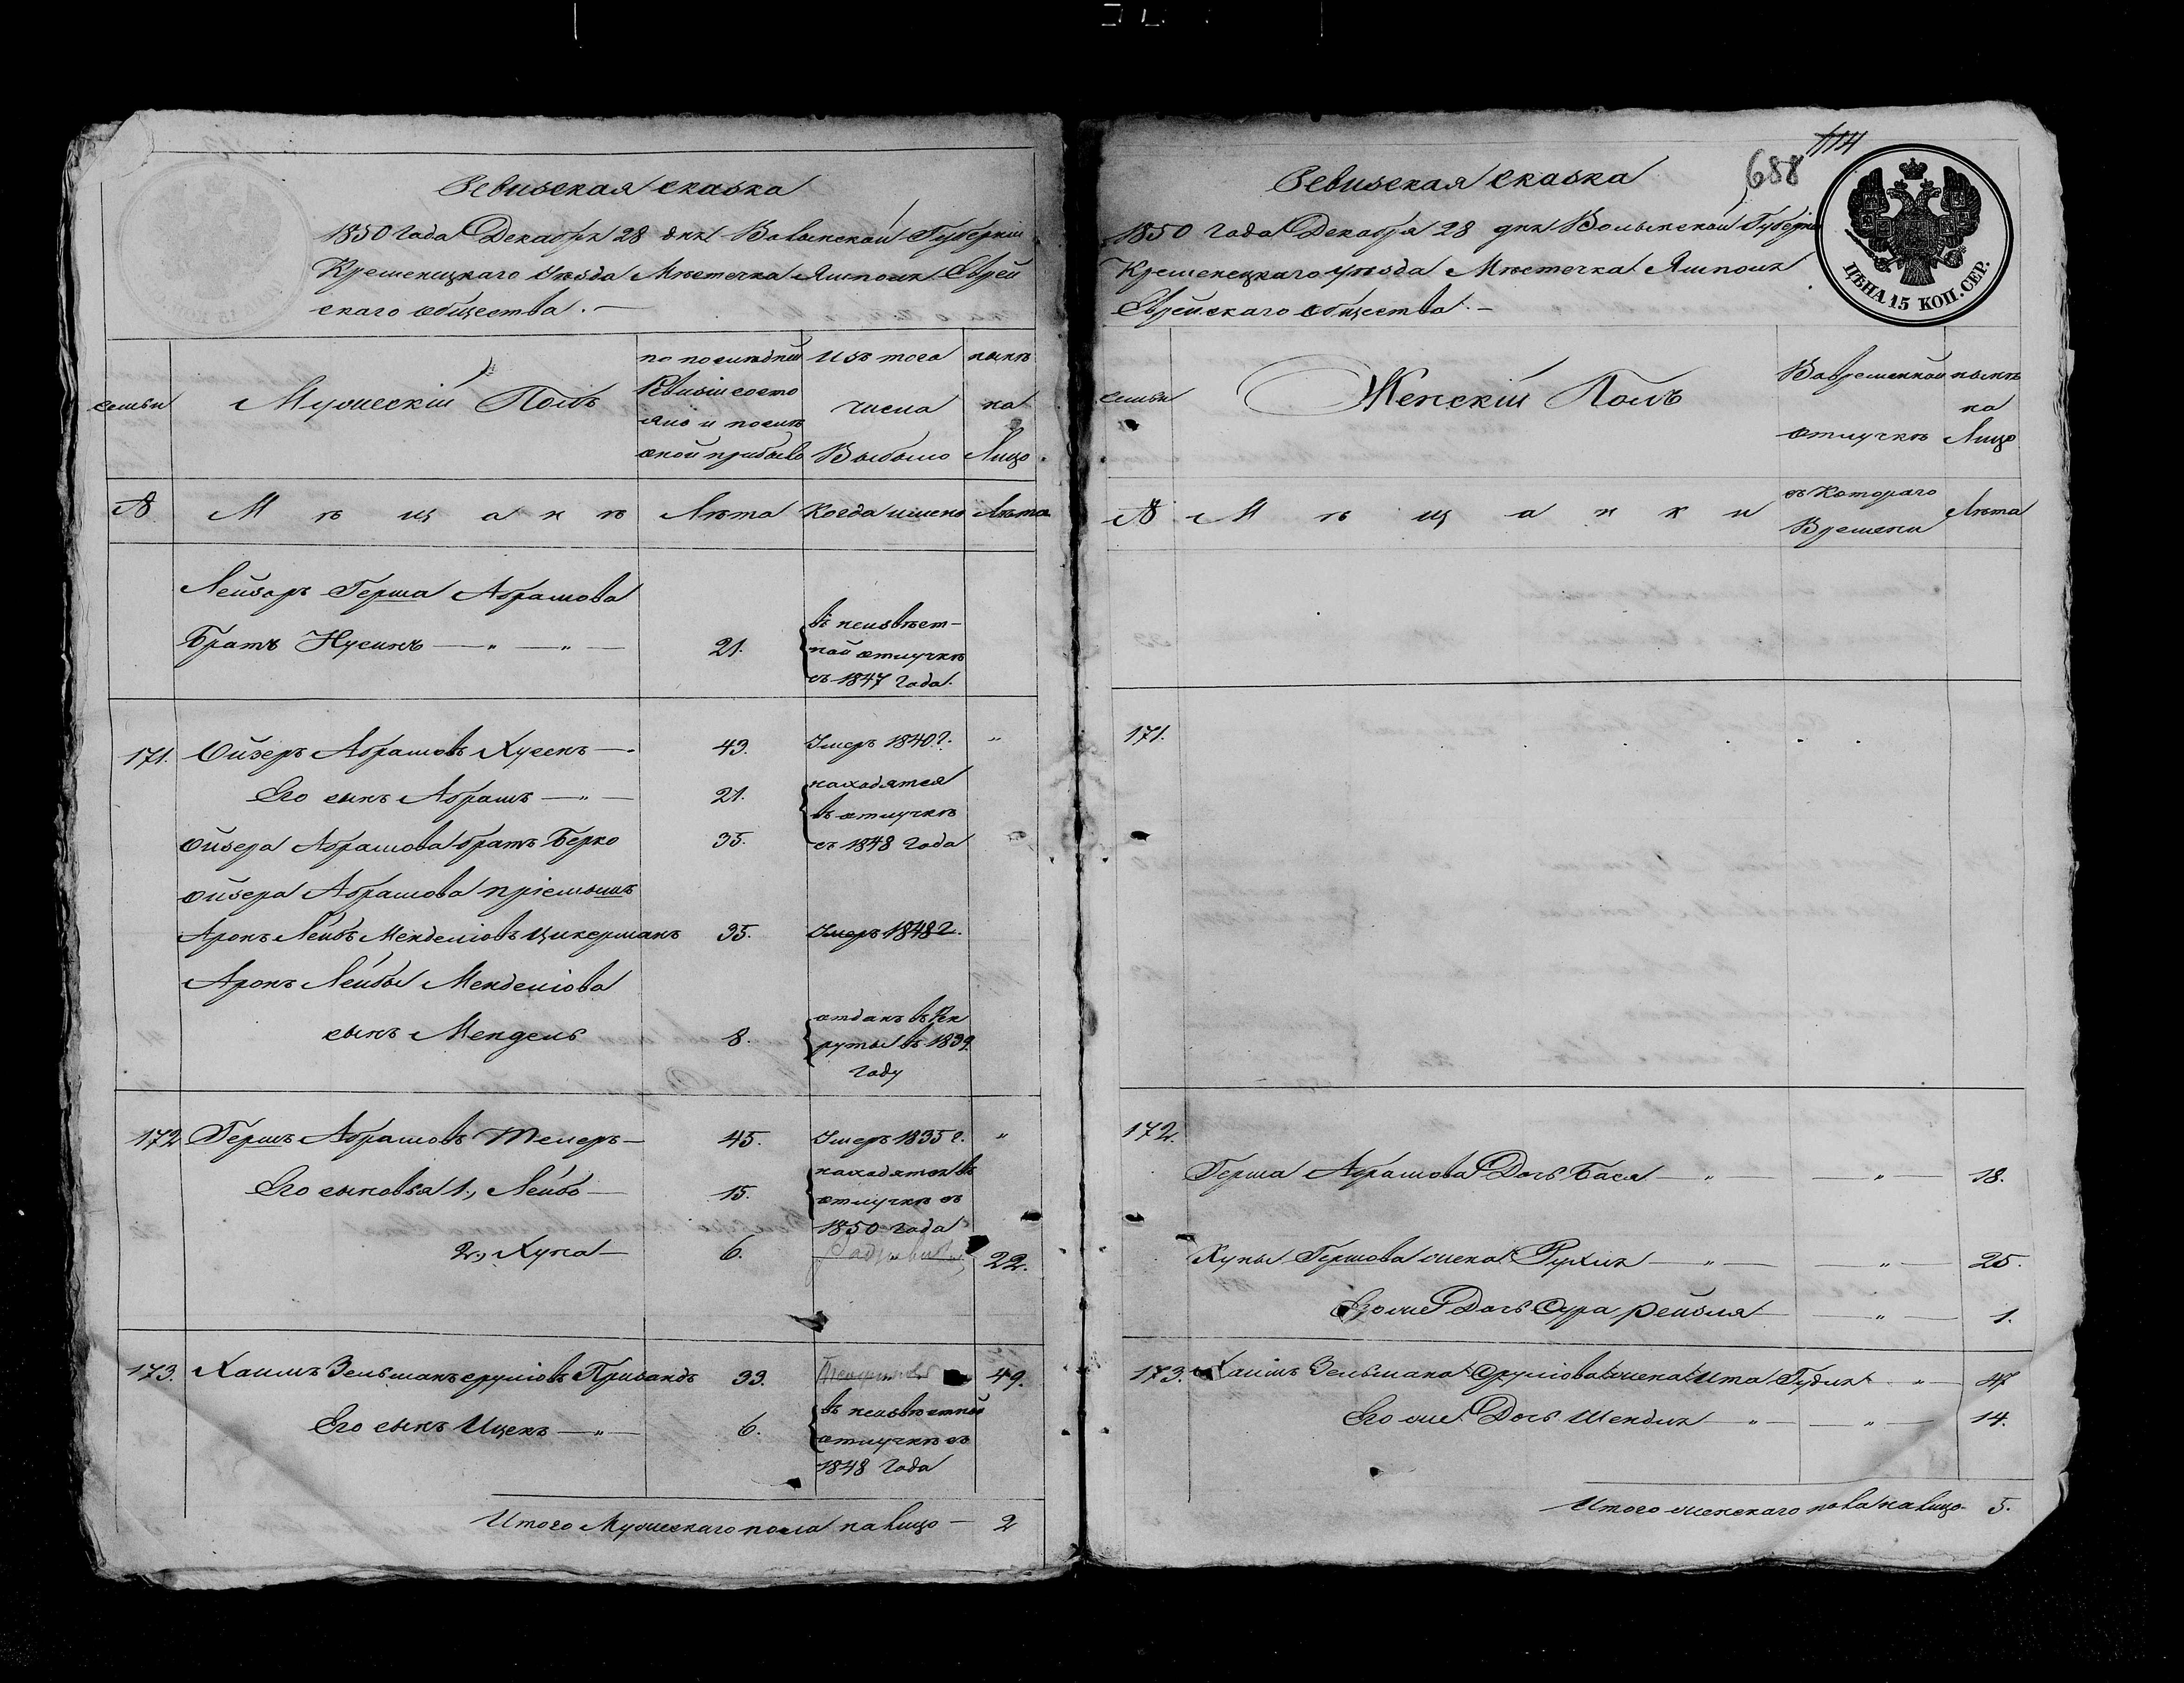 Ревизская сказка
1850 года Декабря 28 дня Волынской Губерніи
Кременецкаго Уѣзда Мѣстечка Ямполя Еврей
скаго общества.
семьи
Мужескій Полъ
по послѣдней
Ревизіи состо
яло и послѣ
оной прибыло
Изъ того
числа
Выбыло
нынѣ
на
Лицо
№
Мѣщанѣ
Лѣта
Когда имено
Лѣта
Лейзоръ Герша Абрамова
Братъ Нусинъ — " — " —
21.
въ неизвѣст-
ной отлучкѣ
съ 1847 года.
171.
Ойзеръ Абрамовъ Хусенъ —
43.
Умеръ 1840 г.
"
Его сынъ Абрамъ — " —
21.
находятся
въ отлучкѣ
съ 1848 года
Ойзера Абрамова братъ Берко
35.
Ойзера Абрамова пріемышъ
Аронъ Лейбъ Менделіовъ Цикерманъ
35.
Умеръ 1848 г.
Аронъ Лейбы Менделіова
сынъ Мендель
8.
отданъ въ Рек
руты въ 1839
году
172
Гершъ Абрамовъ Телеръ —
45.
Умеръ 1835 г.
"
Его сыновья 1., Лейбо —
15.
находятся въ
отлучкѣ съ
1850 года
2., Хуна —
6.
22.
173.
Хаимъ Зельманъ Сруліовъ Призандъ
33.
49.
Его сынъ Ицекъ — " —
6.
въ неизвѣстной
отлучкѣ съ
1848 года
Итого Мужескаго пола на лицо —
2
688
114
ЦѢНА 15 КОП. СЕР.
Ревизская сказка
1850 года Декабря 28 дня Волынской Губерніи
Кременецкаго Уѣзда Мѣстечка Ямполя
Еврейскаго общества. —
семьи
Женскій Полъ
Вовременной
отлучкѣ
нынѣ
на
Лицо
№
Мѣщанки
съ Котораго
Времени
Лѣта
171.
172.
Герша Абрамова Дочь Бася — " —
— " —
18.
Хуны Гершова жена Рухля — " —
— " —
25.
Егоже Дочь Сура Рейзля
— " —
1.
173.
Хаимъ Зельмана Сруліова жена Ита Гудля — " —
47
Его же Дочь Шендля — " —
— " —
14.
Итого женскаго пола на лицо —
5.